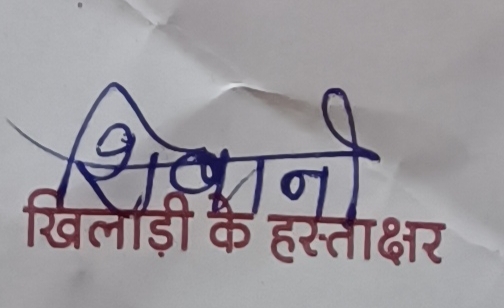 शिवानी
खिलाड़ी के हस्ताक्षर